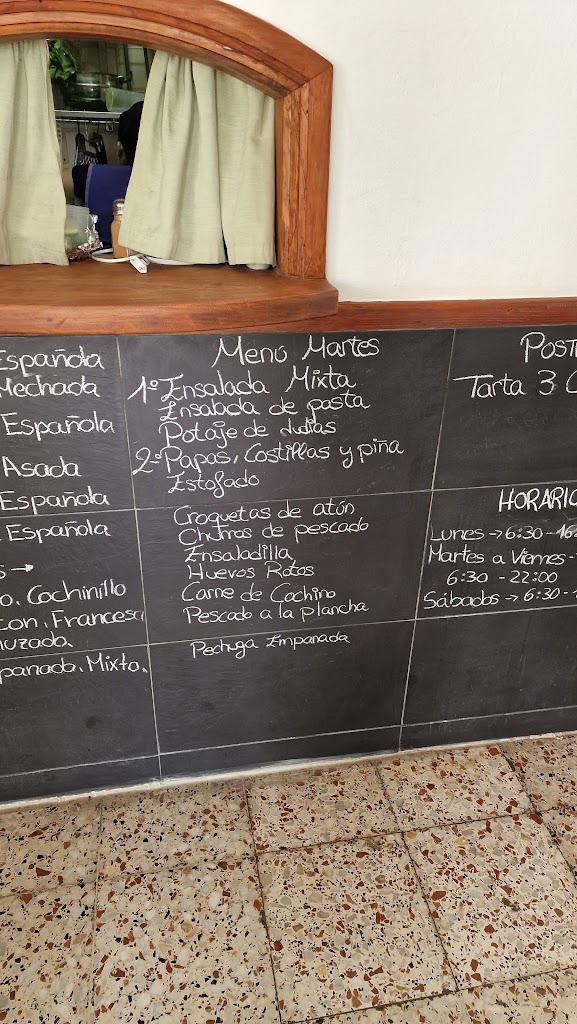 Española
Mechada
Española
Asada
Española
Española
Cochinillo
Francesa
panada. Mixto.
Menú Martes
1º Ensalada Mixta
Ensalada de pasta
Potaje de Judias
2º Papas, Costillas y piña
Estofado
Croquetas de atún
Churros de pescado
Ensaladilla
Huevos Rotos
Carne de Cochino
Pescado a la plancha
Pechuga Empanada
Post
Tarta 3 C
HORARIO
Lunes → 6:30 - 16
Martes a Viernes -
6:30 - 22:00
Sábados → 6:30 -